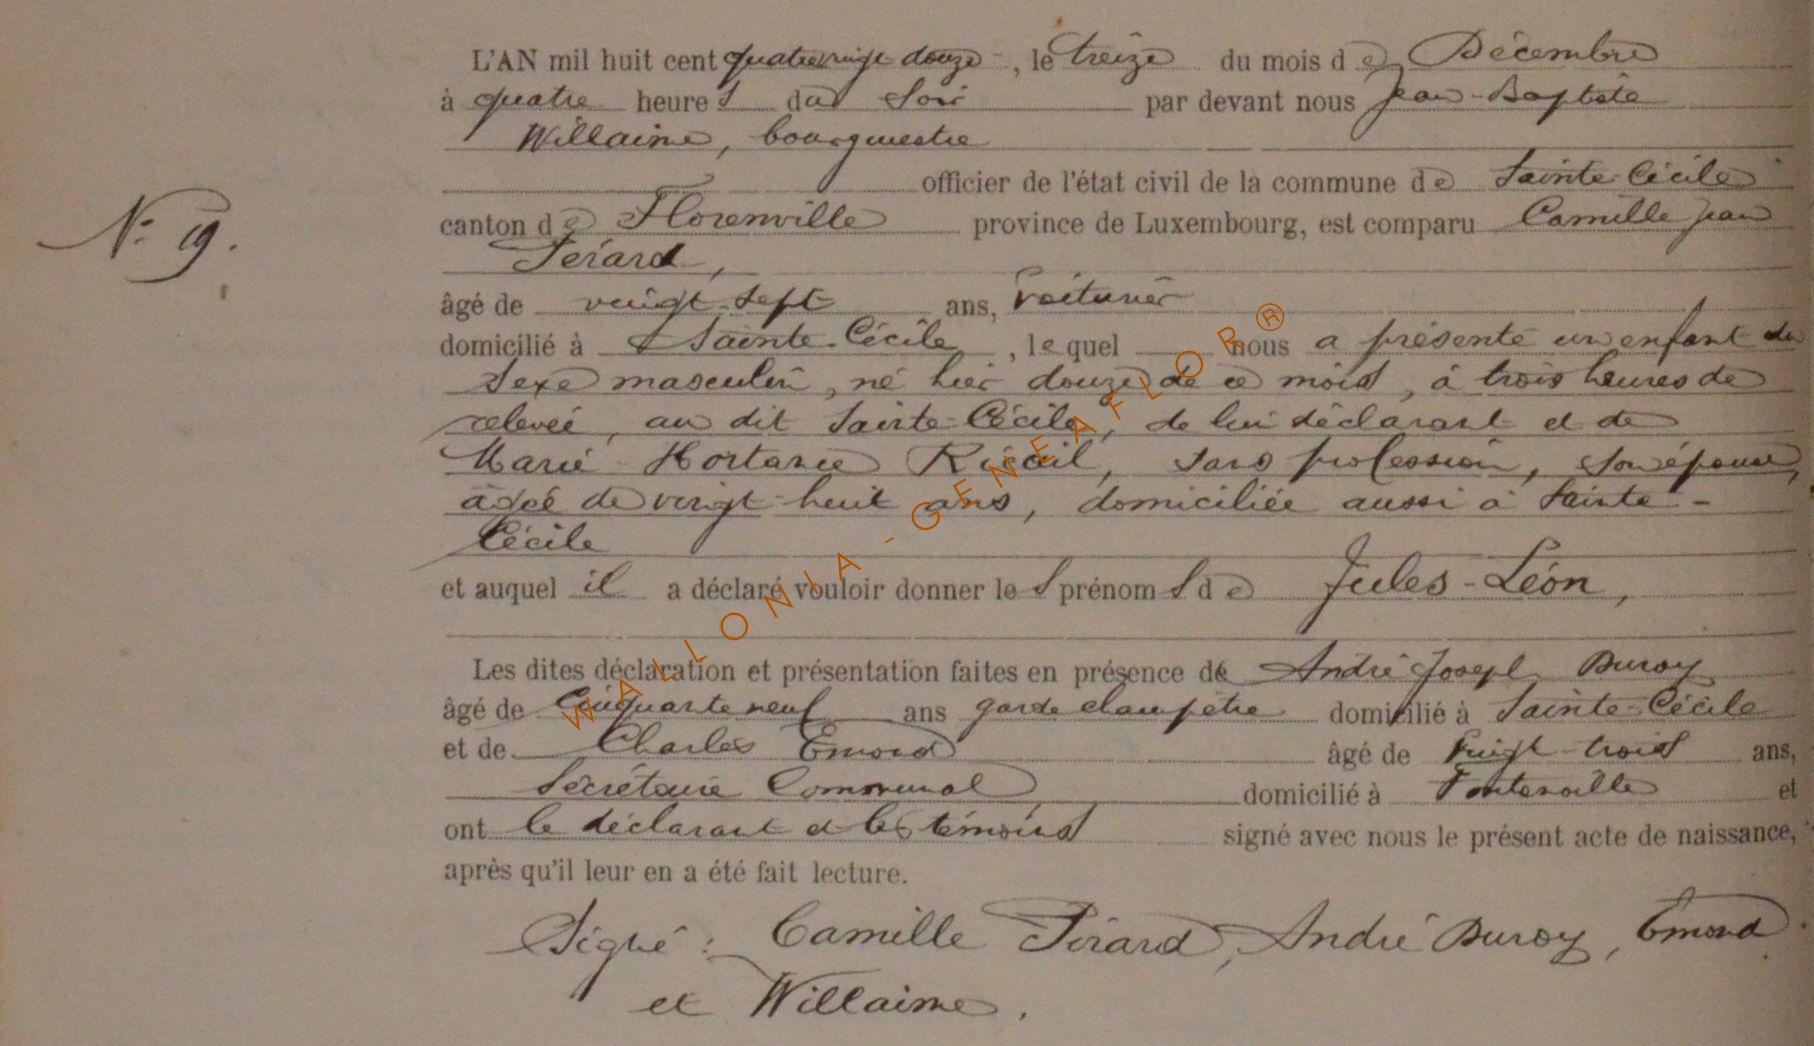 L'AN mil huit cent quatrevingt douze, le treize du mois de Décembre
à quatre heures du soir par devant nous Jean-Baptiste
Willaime, bourgmestre
officier de l'état civil de la commune de Sainte-Cécile
canton de Florenville province de Luxembourg, est comparu Camille Jean
Pérard,
N° 19.
âgé de vingt-sept ans, voiturier
domicilié à Sainte-Cécile, lequel nous a présenté un enfant du
sexe masculin, né hier douze de ce mois, à trois heures de
relevée, au dit Sainte-Cécile, de lui déclarant et de
Marie Hortance, sans profession, son épouse,
âgée de vingt-huit ans, domiciliée aussi à Sainte-
Cécile
et auquel il a déclaré vouloir donner les prénoms de Jules-Léon,
Les dites déclaration et présentation faites en présence de André Joseph Duroy
âgé de Cinquante neuf ans garde champêtre domicilié à Sainte-Cécile
et de Charles Emond âgé de vingt-trois ans,
Secrétaire Communal domicilié à Fontenoille et
ont le déclarant et les témoins signé avec nous le présent acte de naissance,
après qu'il leur en a été fait lecture.
Signé: Camille Pérard, André Duroy, Emond
et Willaime.
WALLONIA-GENEAFLOR®